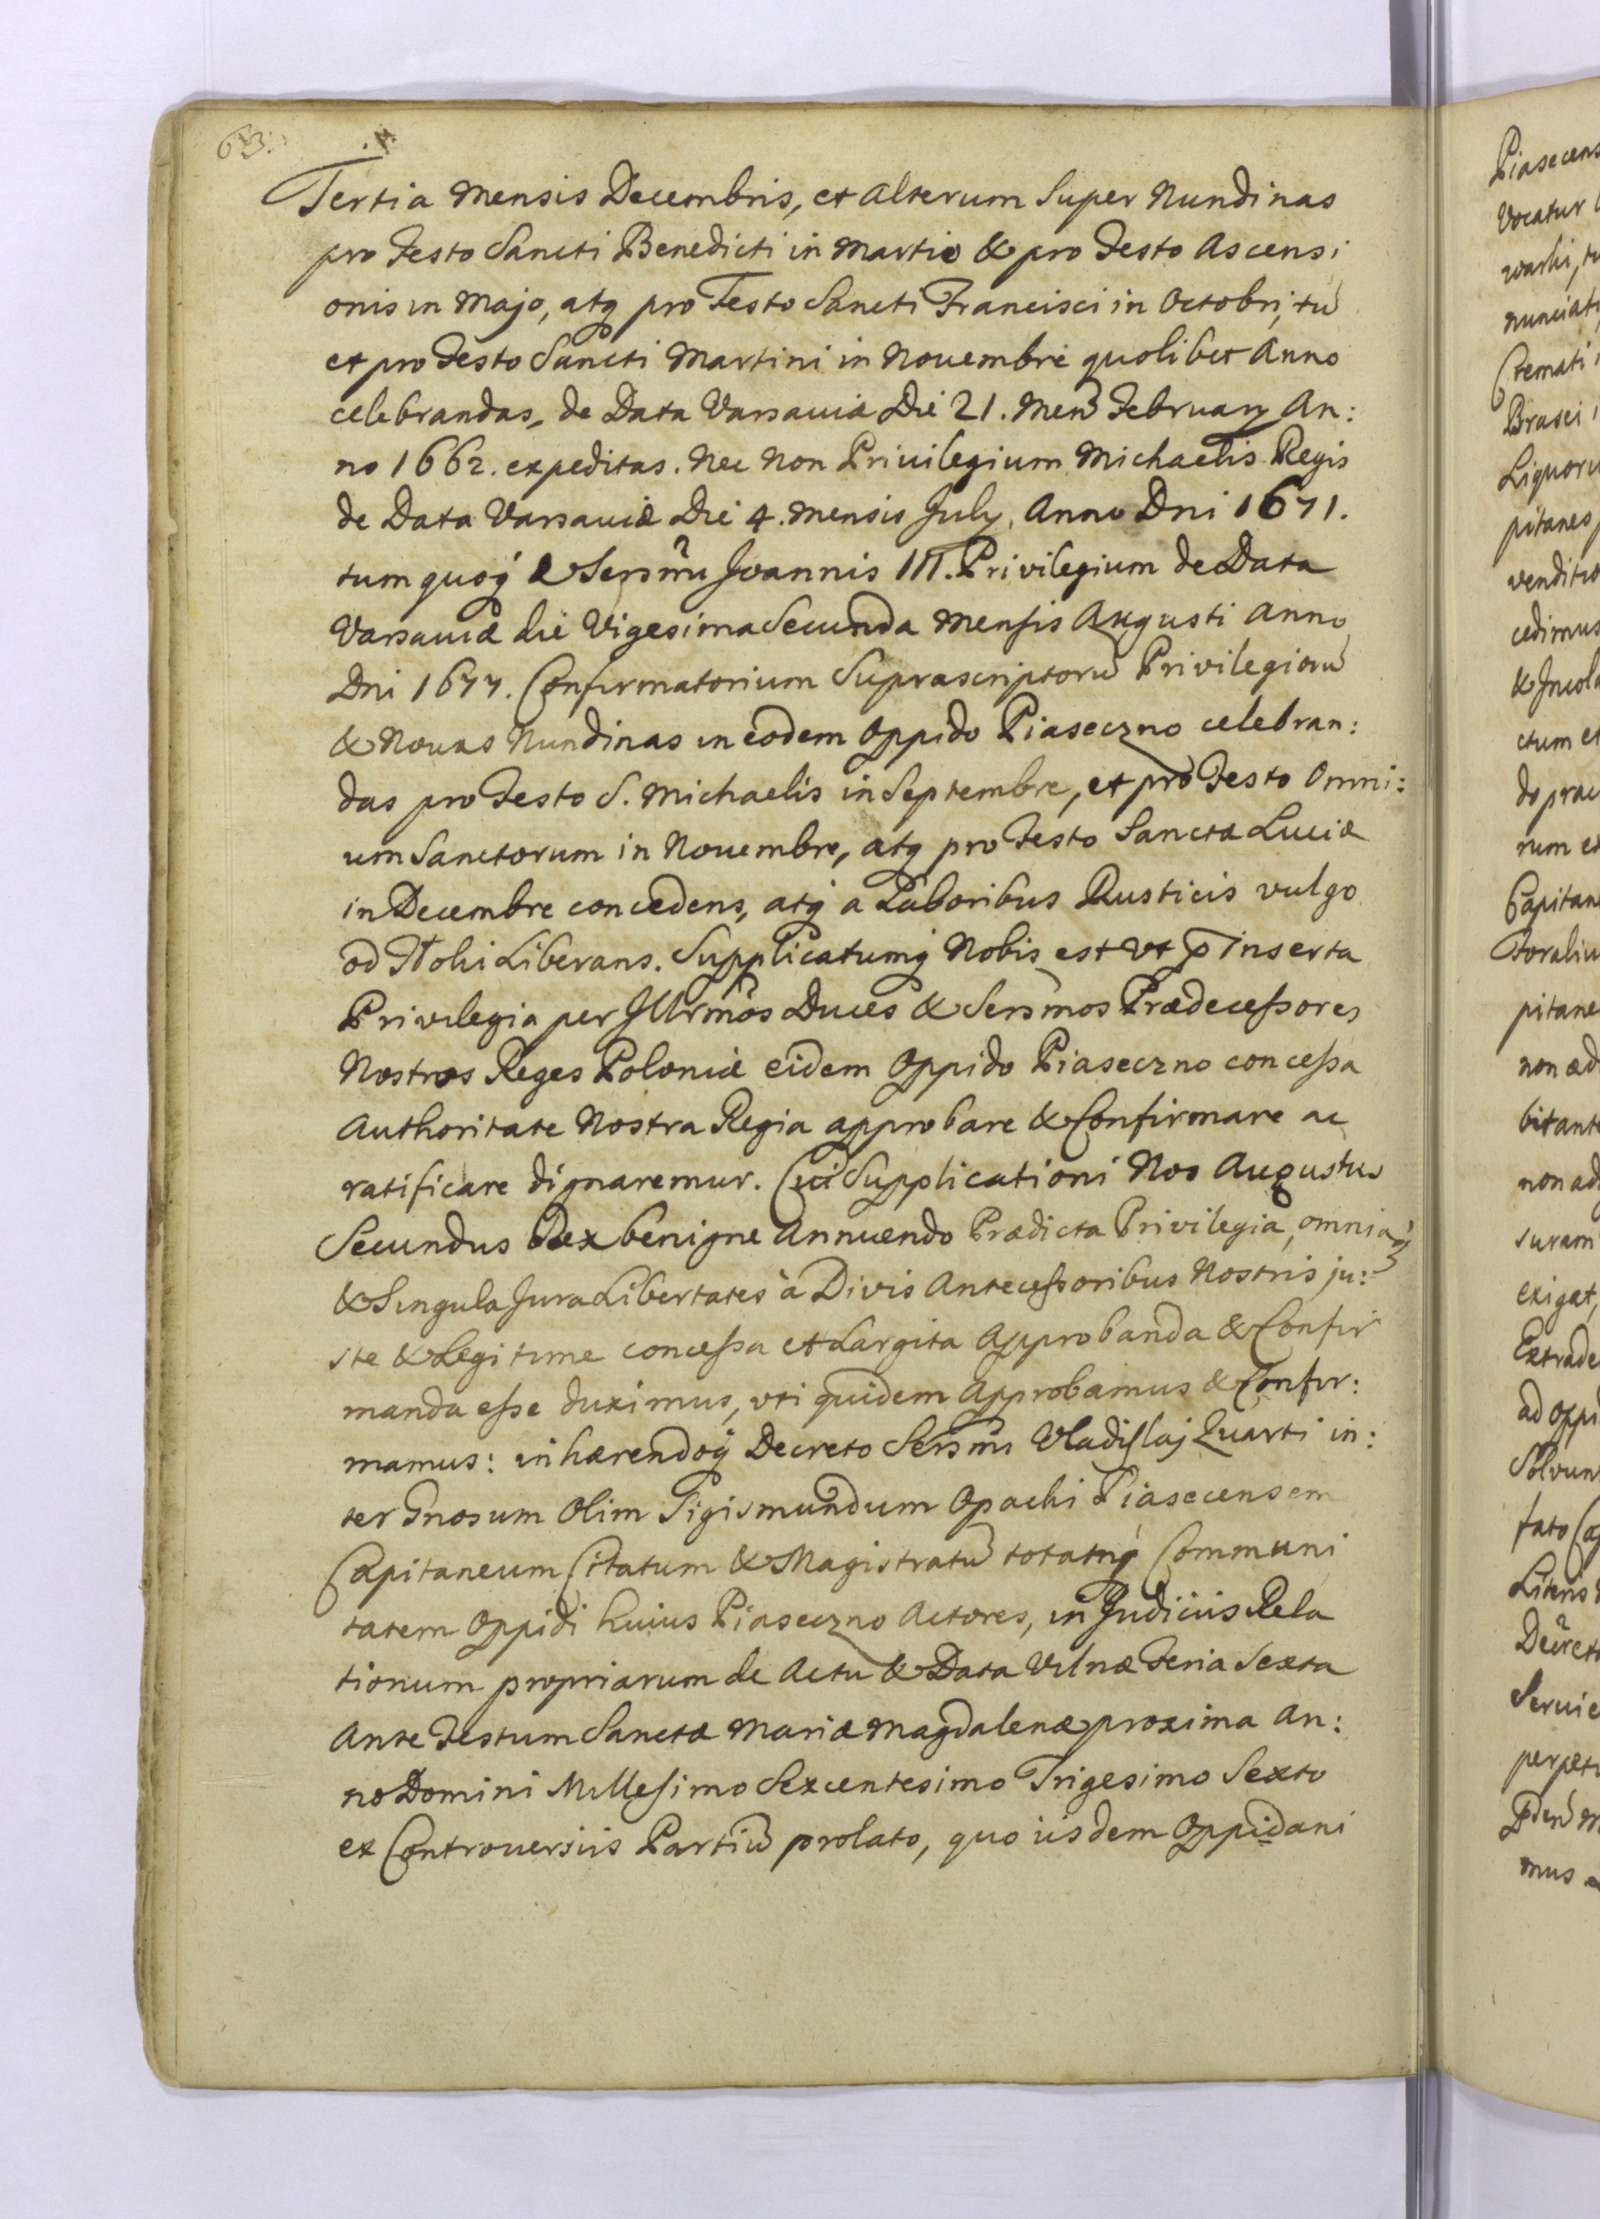 63.
Tertia Mensis Decembris, et Alterum Super Nundinas
pro Festo Sancti Benedicti in Martio & pro Festo Ascensi
onis in Majo, atq pro Festo Sancti Francisci in Octobri, tū
et pro Festo Sancti Martini in Novembre quolibet Anno
celebrandas, de Data Varsavia Die 21. Men February An:
no 1662. expeditas. Nec Non Privilegium Michaelis Regis
de Data Varsaviæ Die 4. Mensis July, Anno Dni 1671.
tum quoq & Sersmu Joannis III. Privilegium de Data
Varsaviæ die Vigesima Secunda Mensis Augusti Anno
Dni 1677. Confirmatorium Suprascriptorū Privilegiorū
& Novas Nundinas in eodem Oppido Piaseczno celebran:
das pro Festo S. Michaelis in Septembre, et pro Festo Omni:
um Sanctorum in Novembre, atq pro Festo Sanctæ Luciæ
in Decembre concedens, atq a Laboribus Rusticis vulgo
od Tłoki Liberans. Supplicatumq Nobis est vt p Inserta
Privilegia per Jllrmos Duces & Sersmos Prædecessores
Nostros Reges Poloniæ eidem Oppido Piaseczno concessa
Authoritate Nostra Regia approbare & Confirmare ac
ratificare dignaremur. Cui Supplicationi Nos Augustus
Secundus Rex benigne Annuendo Prædicta Privilegia, omniaq
& Singula Jura Libertates à Divis Antecessoribus Nostris ju:
ste & Legitime concessa et Largita Approbanda & Confir
manda esse duximus, vti quidem Approbamus & Confir:
mamus: inhærendoq Decreto Sersmi Vladislaj Quarti in:
ter Gnosum Olim Sigismundum Opacki Piasecensem
Capitaneum Citatum & Magistratū totamq Communi
tatem Oppidi huius Piaseczno Actores, in Judiciis Rela
tionum propriarum de Actu & Data Vilnæ Feria Sexta
Ante Festum Sanctæ Mariæ Magdalenæ proxima An:
no Domini Millesimo Sexcentesimo Trigesimo Sexto
ex Controversiis Partiū prolato, quo iisdem Oppidani